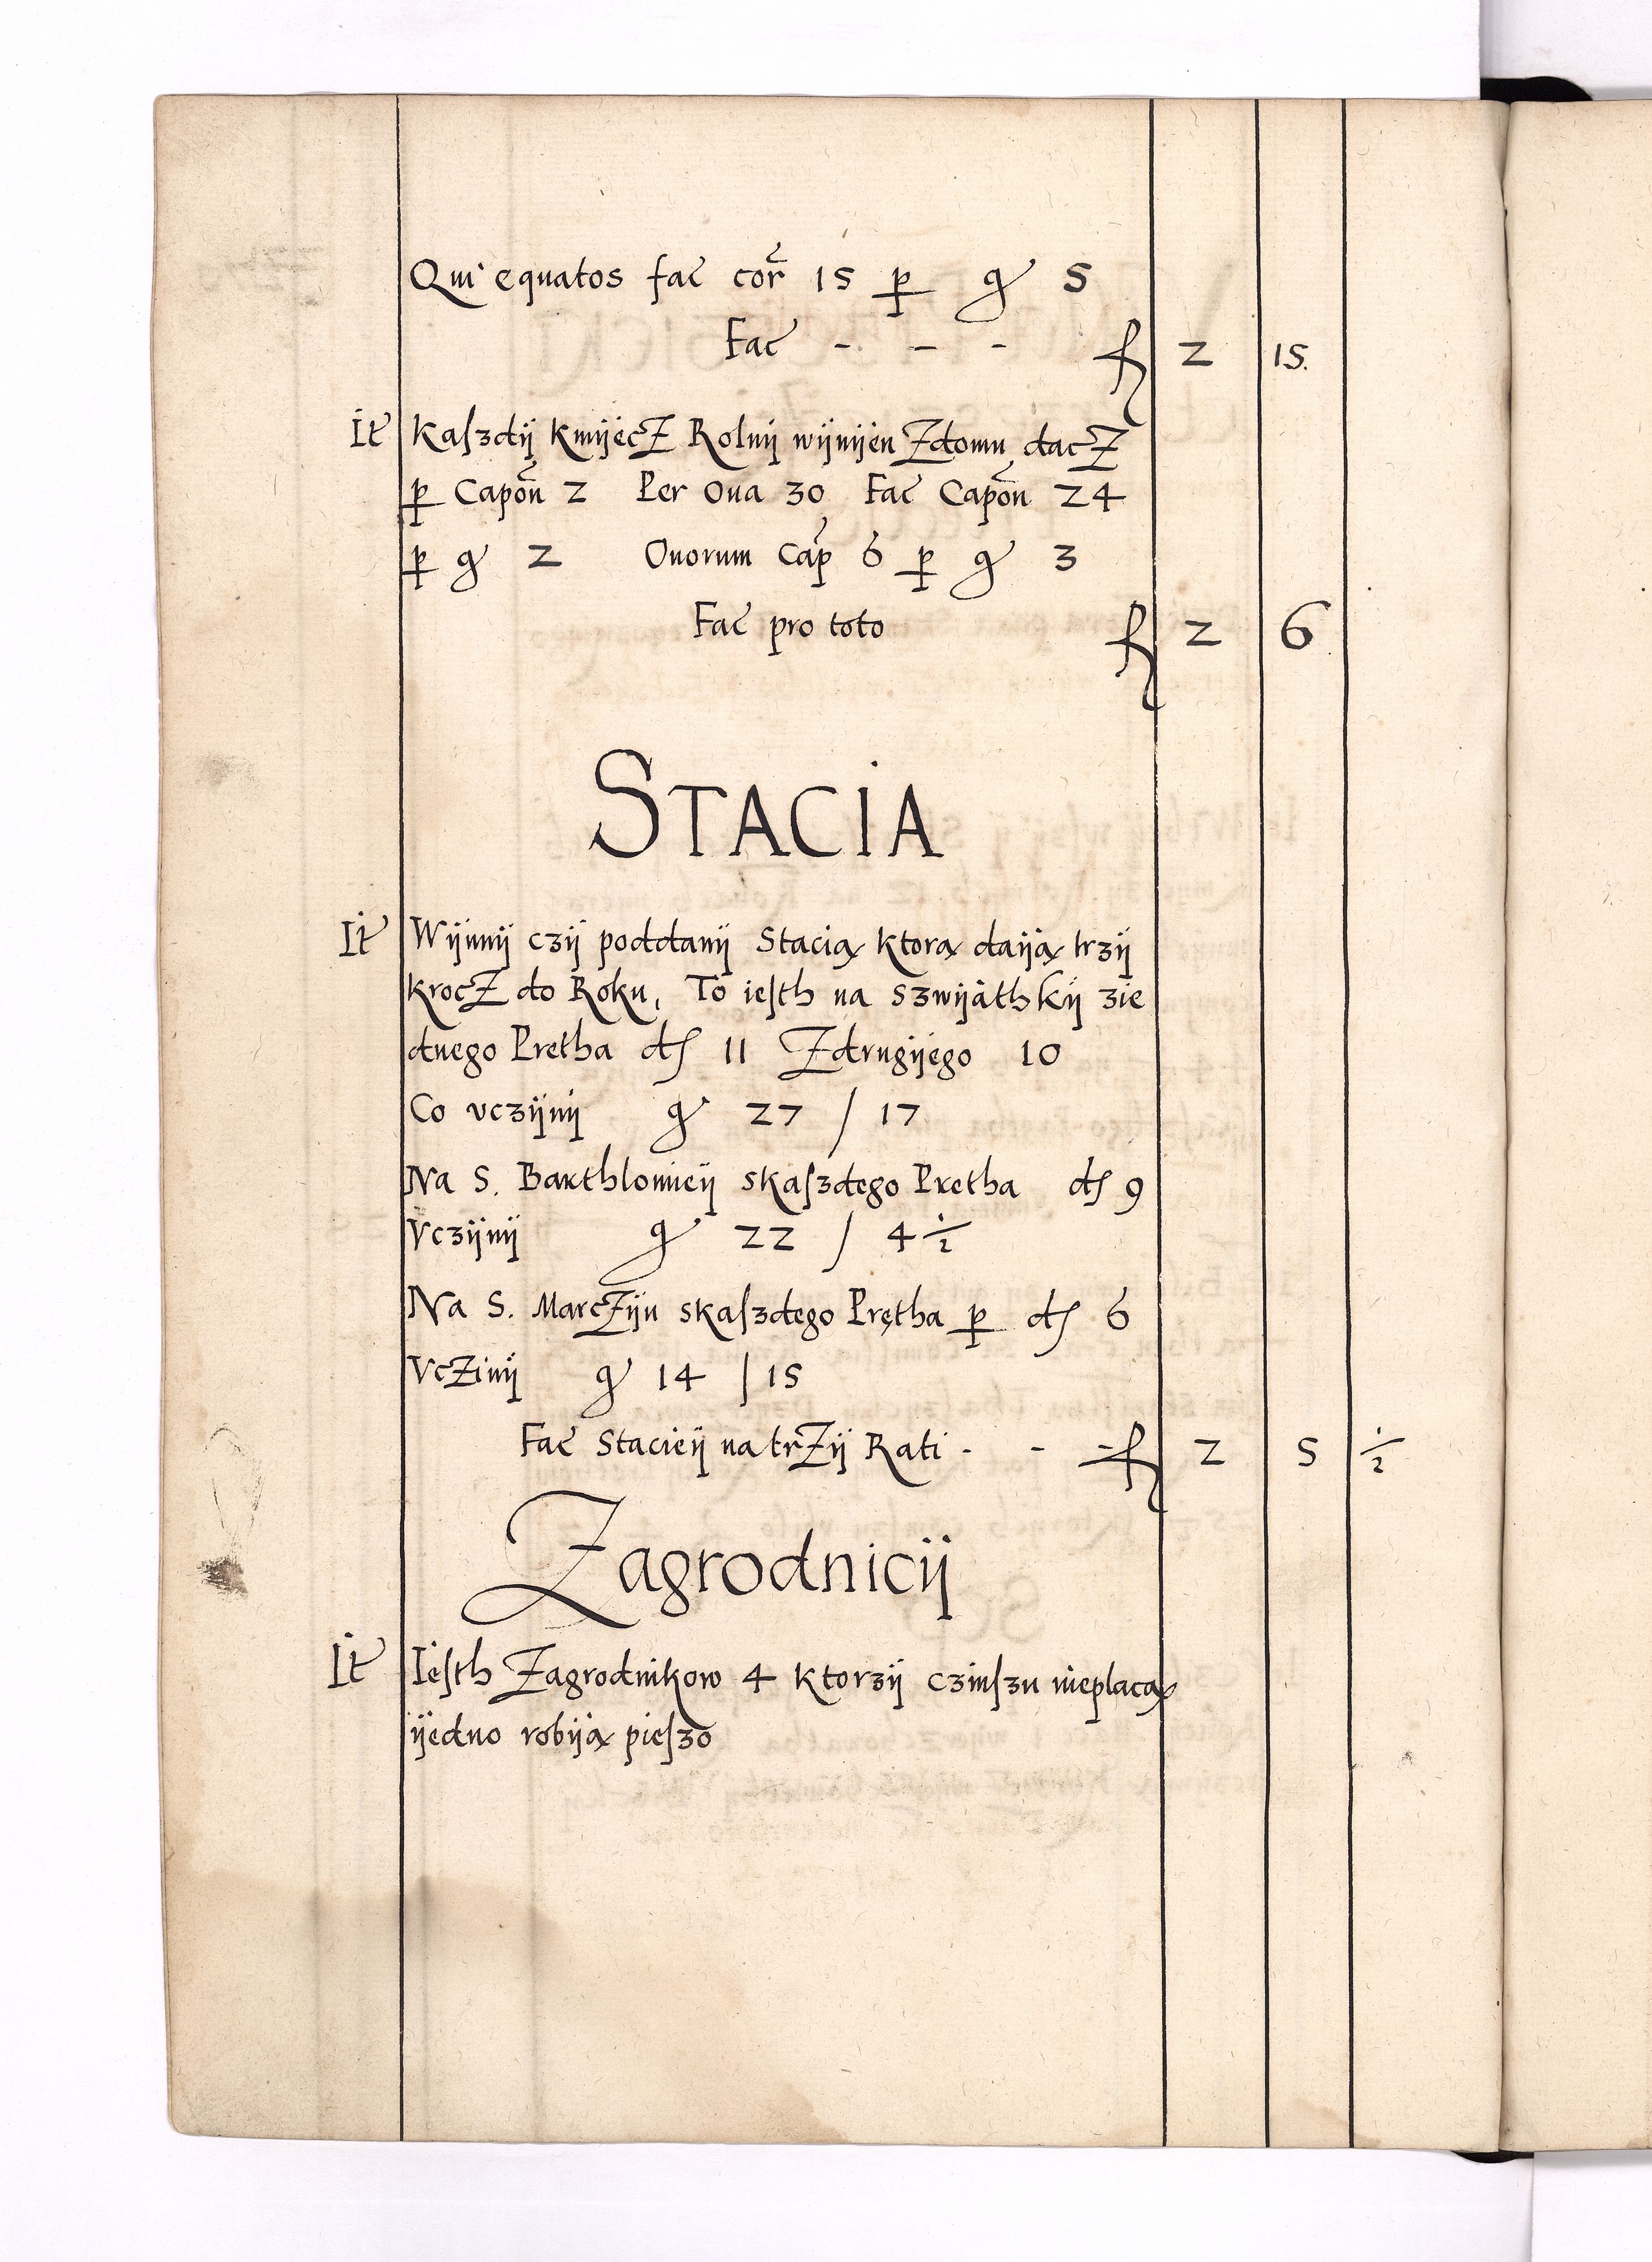 Qui equatos fac cor 15 p g 5
Fac - - - f 2 15.
It Kaſzdij kmijecz Rolnij wijnijen Zdomu dacz
p Capon 2 Per Oua 30 Fac Capon 24
p g 2 Ouorum Cap 6 p g 3
Fac pro toto f 2 6
STACIA
It Wijnnij czij poddanij Stacią ktorą daiją trzij
krocz do Roku, To ieſth na szwijąthkij zie
dnego Pretha dſ 11 Zdrugijego 10
Co vczijnij g 27 / 17
Na S. Barthlomieij skaſzdego Pretha dſ 9
Vczijnij g 22 / 4 ½
Na S. Marczijn skaſzdego Prętha p dſ 6
Vczinij g 14 / 15
Fac Stacieij na trzij Rati - - - f 2 5 ½
Zagrodnicij
It Ieſth Zagrodnikow 4 ktorzij czinſzu nieplacą
ijedno robiją pieſzo